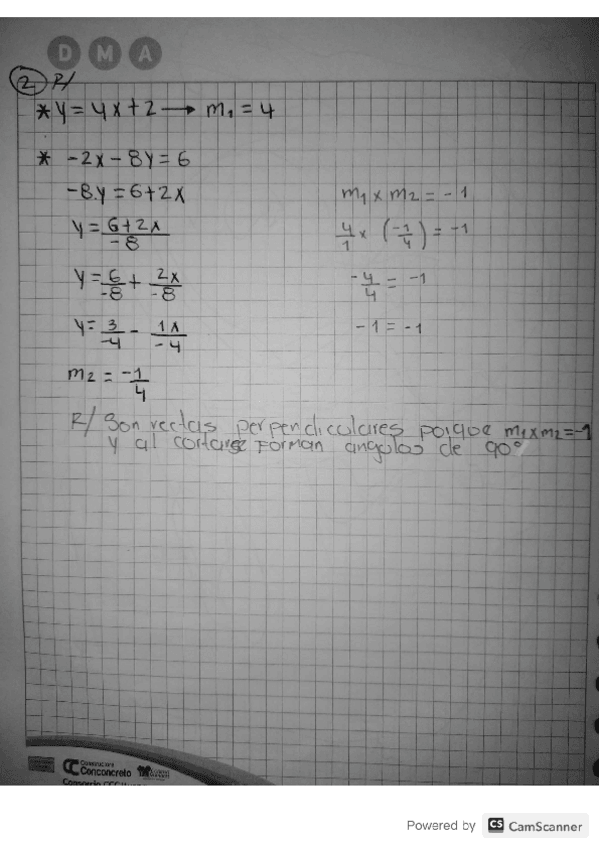 D M A
2 R/
* y = 4x + 2 → m₁ = 4
* -2x - 8y = 6
-8.y = 6 + 2x
y = 6 + 2x / -8
y = 6/-8 + 2x/-8
y = 3/-4 - 1x/-4
m₂ = -1/4
m₁ x m₂ = -1
4/1 x (-1/4) = -1
-4/4 = -1
-1 = -1
R/ Son rectas perpendiculares porque m₁xm₂=-1
y al cortarse forman angulos de 90°
Conconcreto
Powered by CS CamScanner